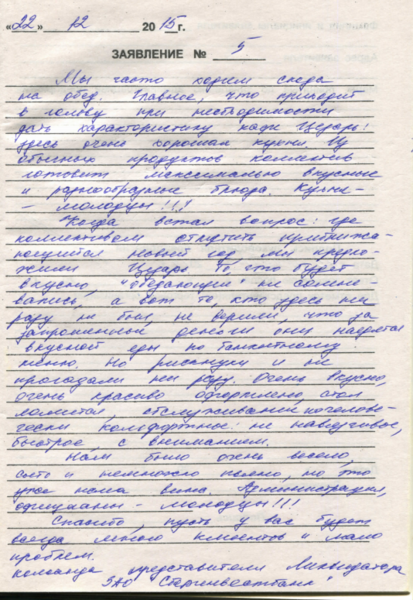 «22» 12 2015 г.
ЗАЯВЛЕНИЕ № 5
Мы часто ходим сюда
на обед. Главное, что приходит
в голову при необходимости
дать характеристику кафе Цезарь:
здесь очень хорошая кухня. Из
обычных продуктов коллектив
готовит максимально вкусные
и разнообразные блюда. Кухня -
- молодцы!!!
Когда встал вопрос: где
коллективом отметить приближа-
ющийся новый год, мы предло-
жили Цезарь. То, что будет
вкусно, "обедающие" не сомне-
вались, а вот те, кто здесь ни
разу не был, не верили, что за
запрошенные деньги они наедятся
вкусной еды по банкетному
меню. Но рискнули и не
прогадали ни разу. Очень вкусно,
очень красиво оформлено, стол
ломится, обслуживание по-челове-
чески комфортное: не навязчивое,
быстрое, с вниманием.
Нам было очень весело,
сыто и немножко пьяно, но это
уже не ваша вина. Администрация,
официанты - молодцы!!!
Спасибо, пусть у вас будет
всегда много клиентов и мало
проблем.
Команда представителя Ликвидатора
ЗАО